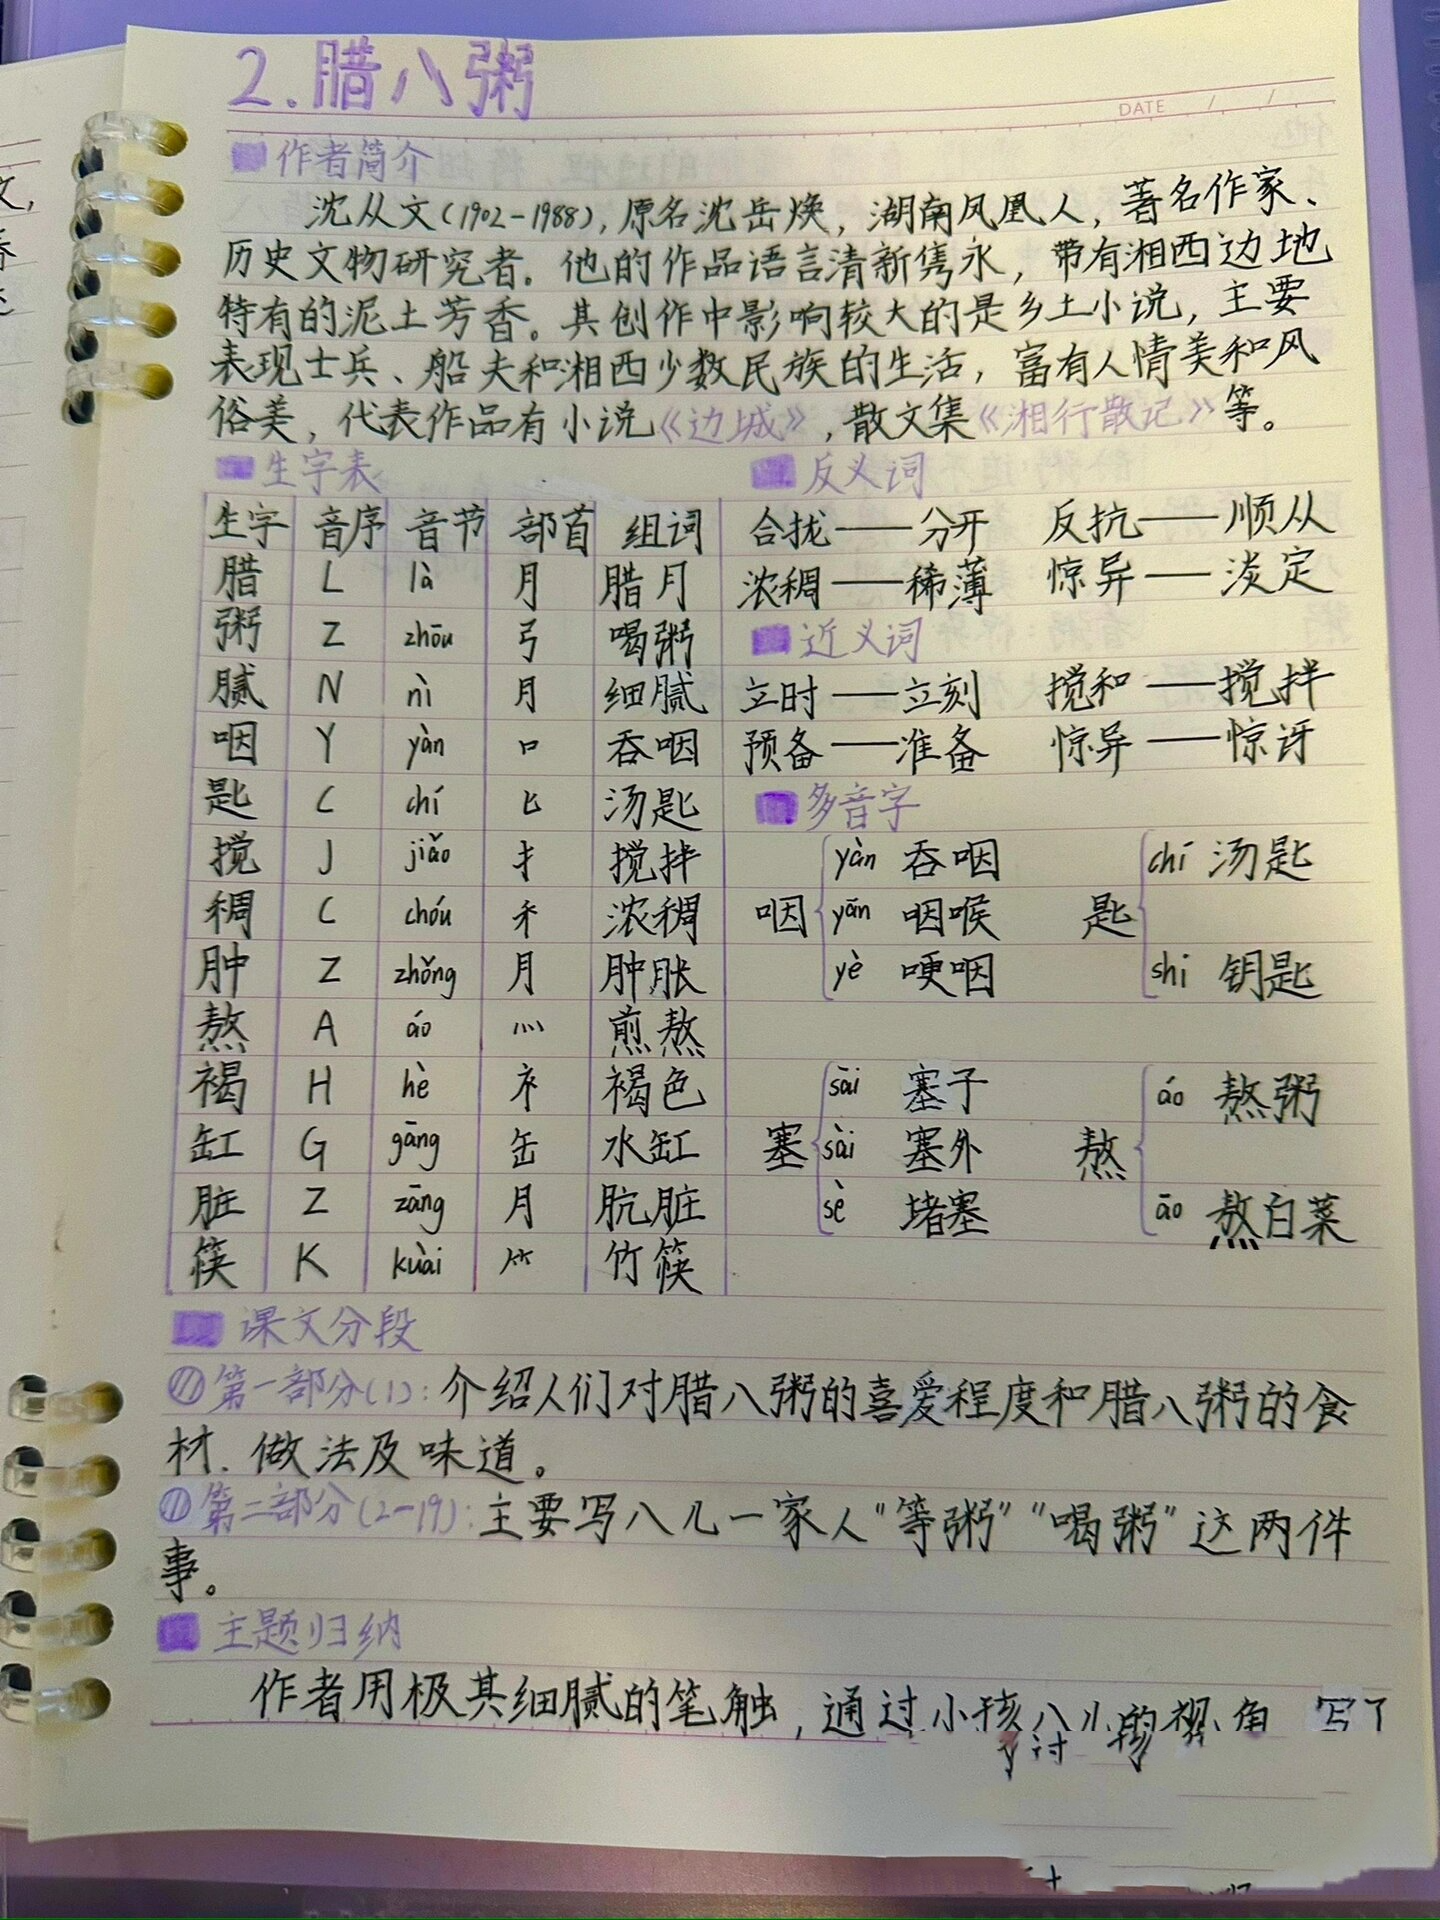 2.腊八粥
DATE / /
作者简介
沈从文(1902-1988),原名沈岳焕,湖南凤凰人,著名作家、
历史文物研究者。他的作品语言清新隽永,带有湘西边地
特有的泥土芳香。其创作中影响较大的是乡土小说,主要
表现士兵、船夫和湘西少数民族的生活,富有人情美和风
俗美,代表作品有小说《边城》,散文集《湘行散记》等。
生字表
生字 音序 音节 部首 组词
腊 L là 月 腊月
粥 Z zhōu 弓 喝粥
腻 N nì 月 细腻
咽 Y yàn 口 吞咽
匙 C chí 匕 汤匙
搅 J jiǎo 扌 搅拌
稠 C chóu 禾 浓稠
肿 Z zhǒng 月 肿胀
熬 A áo 灬 煎熬
褐 H hè 衤 褐色
缸 G gāng 缶 水缸
脏 Z zāng 月 肮脏
筷 K kuài ⺮ 竹筷
反义词
合拢——分开 反抗——顺从
浓稠——稀薄 惊异——淡定
近义词
立时——立刻 搅和——搅拌
预备——准备 惊异——惊讶
多音字
yàn 吞咽 chí 汤匙
咽 yān 咽喉 匙
yè 哽咽 shi 钥匙
sāi 塞子 áo 熬粥
塞 sài 塞外 熬
sè 堵塞 āo 熬白菜
课文分段
第一部分(1):介绍人们对腊八粥的喜爱程度和腊八粥的食
材、做法及味道。
第二部分(2-19):主要写八儿一家人"等粥""喝粥"这两件
事。
主题归纳
作者用极其细腻的笔触,通过小孩八儿的视角 写了